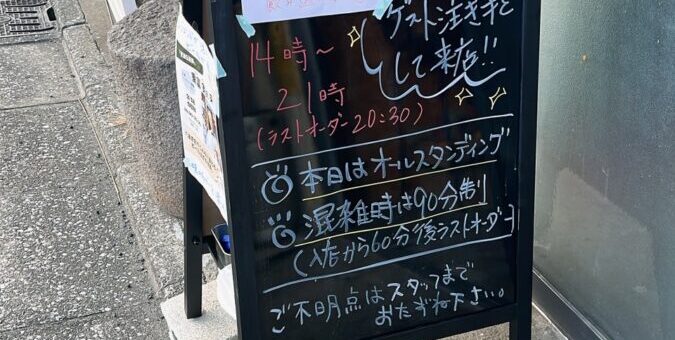 ゲスト注ぎ手と
して来店!!
14時~
21時
(ラストオーダー20:30)
本日はオールスタンディング
混雑時は90分制
(入店から60分後ラストオーダー)
ご不明点はスタッフまで
おたずね下さい。